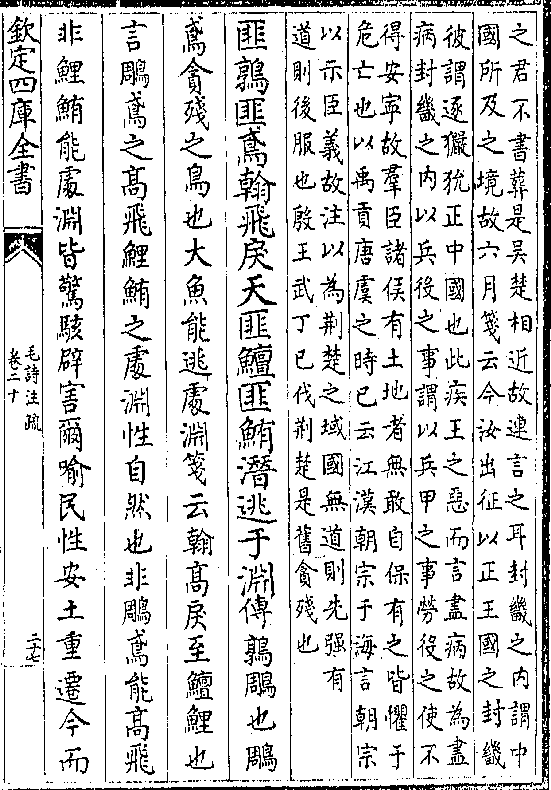 之君不書葬是吴楚相近故連言之耳封畿之内謂中
國所及之境故六月箋云今汝出征以正王國之封畿
彼謂逐玁狁正中國也此疾王之惡而言盡病故為盡
病封畿之内以兵役之事謂以兵甲之事勞役之使不
得安寧故羣臣諸侯有土地者無敢自保有之皆懼于
危亡也以禹貢唐虞之時已云江漢朝宗于海言朝宗
以示臣義故注以為荆楚之域國無道則先强有
道則後服也殷王武丁已伐荆楚是舊貪殘也
匪鶉匪鳶翰飛戾天匪鱣匪鮪潛逃于淵傳鶉鵰也鵰
鳶貪殘之鳥也大魚能逃處淵箋云翰髙戾至鱣鯉也
言鵰鳶之髙飛鯉鮪之處淵性自然也非鵰鳶能髙飛
非鯉鮪能處淵皆驚駭辟害爾喻民性安土重遷今而
欽定四庫全書
毛詩注疏
卷二十
二十七